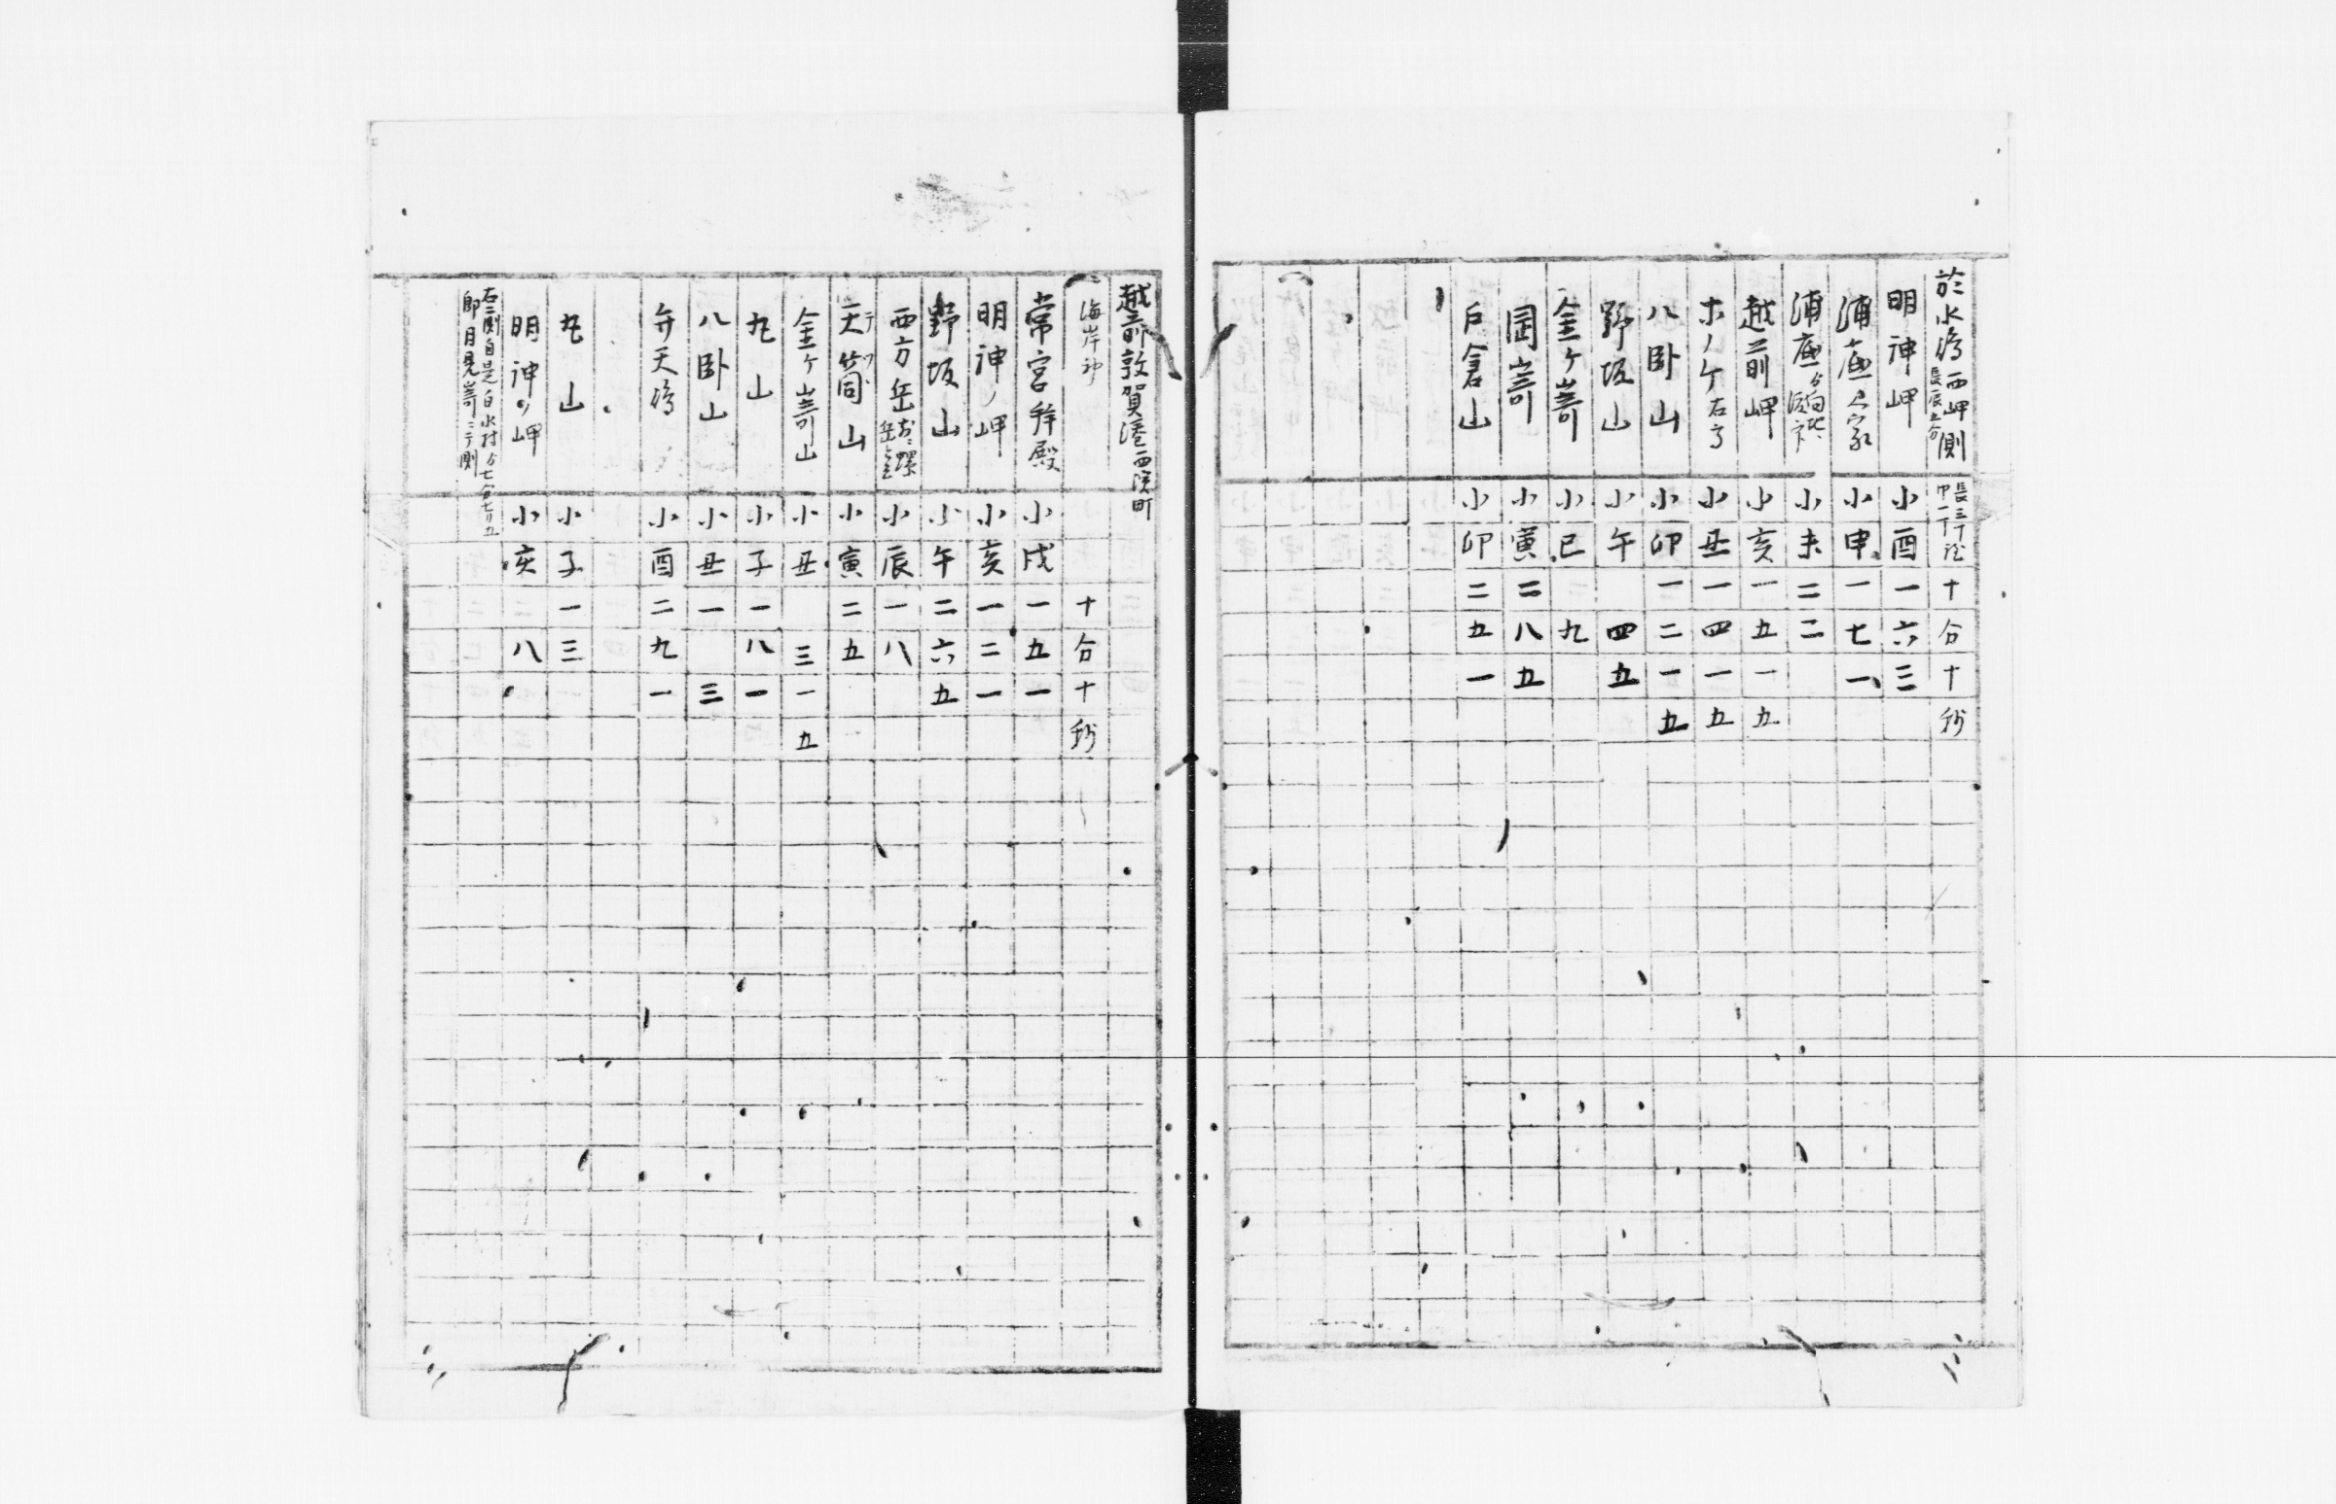 於水嶋西岬側 長三丁
十 分 十 秒
明神岬 小酉一六三
浦底人家 小申一七一
浦底 小未二二
越前岬 小亥一五一五
ホノケ 小丑一四一五
八卧山 小卯一二一五
野坂山 小午 四五
金ヶ嵜 小巳 九
岡嵜 小寅二八五
戸倉山 小卯二五一
越前敦賀湊西濱町
海岸 十 分 十 秒
常宮拜殿 小戌一五一
明神ノ岬 小亥一二一
野坂山 小午二六五
西方岳 小辰一八
天筒山 小寅二五
金ヶ嵜山 小丑 三一五
丸山 小子一八一
八卧山 小丑一 三
弁天嶋 小酉二九一
丸山 小子一三
明神ノ岬 小亥 八